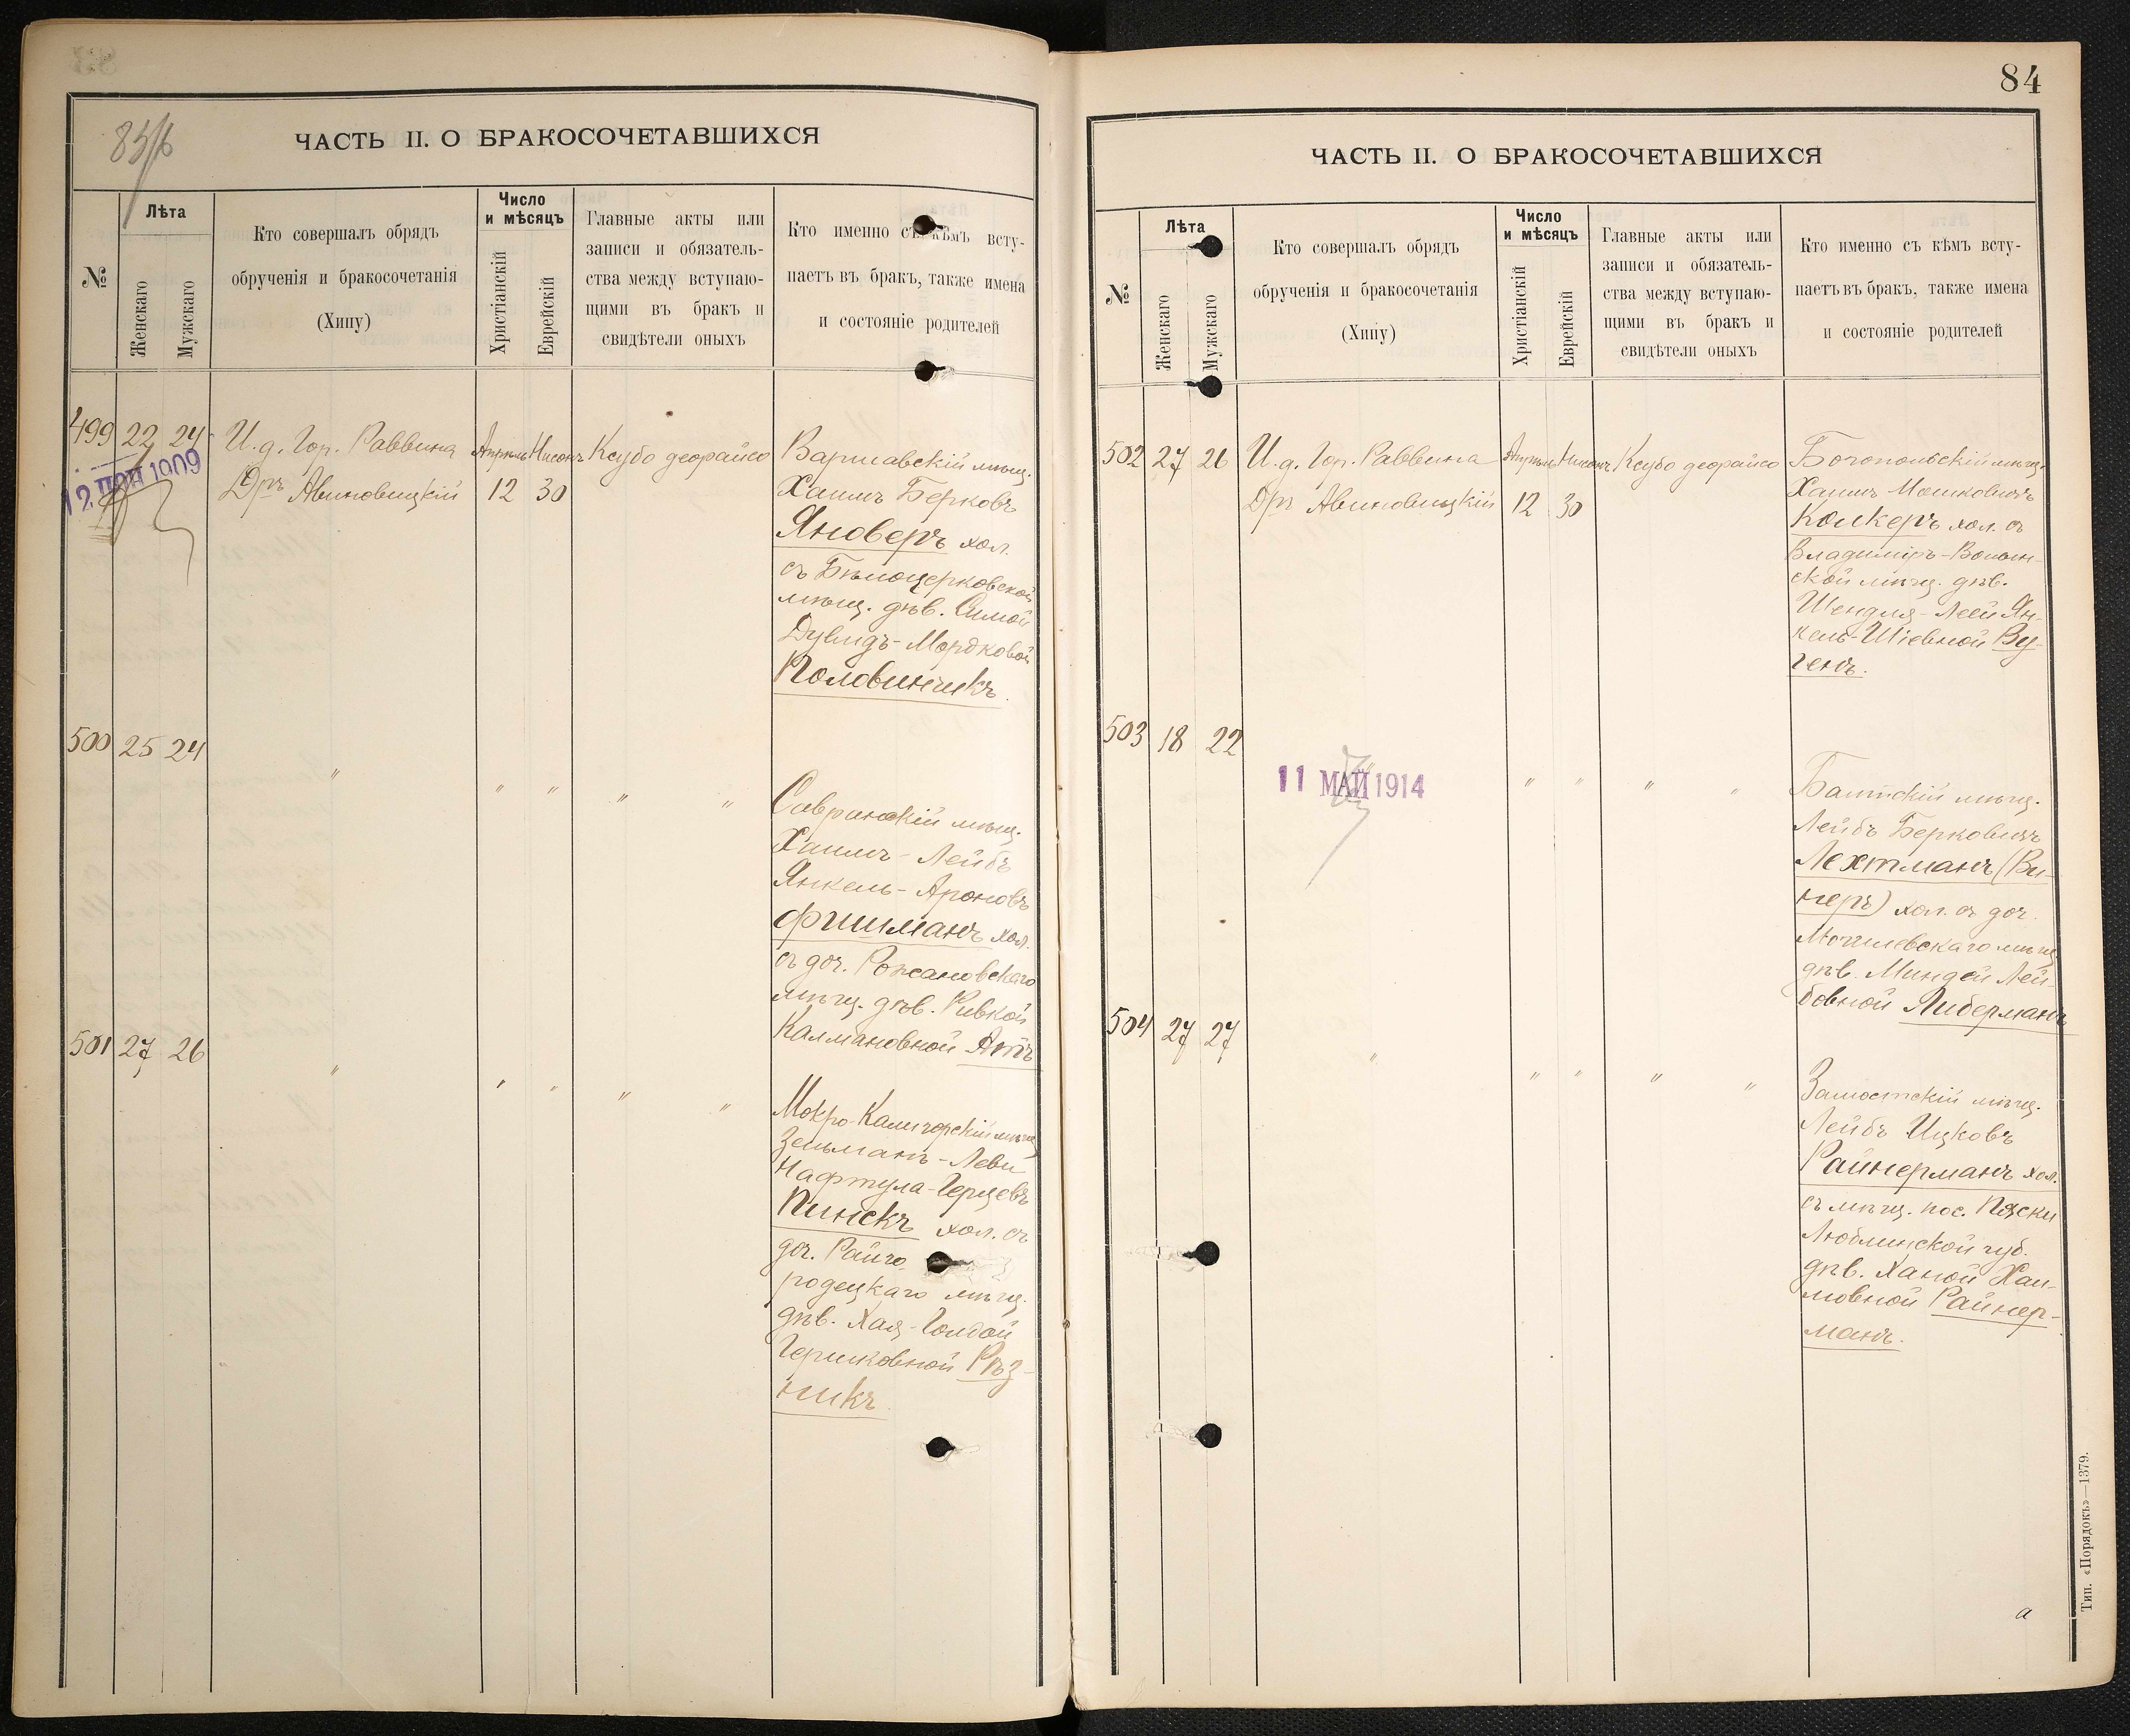 ЧАСТЬ II. О БРАКОСОЧЕТАВШИХСЯ
№
Лѣта
Женскаго
Мужскаго
Кто совершалъ обрядъ
обрученія и бракосочетанія
(Хипу)
Число
и мѣсяцъ
Христіанскій
Еврейскій
Главные акты или
записи и обязатель-
ства между вступаю-
щими въ бракъ и
свидѣтели оныхъ
Кто именно съ кѣмъ всту-
паетъ въ бракъ, также имена
и состояніе родителей
499 22 24 И. д. Гор. Раввина Апрѣль Нисонъ Ксубо деорайсо
Дръ Авиновицкій 12 30
1909
Варшавскій мѣщ.
Хаимъ Берковъ
Яноверъ хол.
съ Бѣлоцерковской
мѣщ. дѣв. Симой
Дувидъ-Мордковой
Половинчикъ.
500 25 24 " " " " "
Савранскій мѣщ.
Хаимъ-Лейбъ
Янкель-Ароновъ
Фишманъ хол.
съ доч. Рожановскаго
мѣщ. дѣв. Ривкой
Калмановной
501 27 26 " " " " "
Мокро-Калигорскій мѣщ.
Зельманъ-Леви
Нафтула-Герцевъ
Пинскъ хол. съ
доч. Райго
родецкаго мѣщ.
дѣв. Хая-Голдой
Гершковной Рѣз-
никъ.
84
ЧАСТЬ II. О БРАКОСОЧЕТАВШИХСЯ
№
Лѣта
Женскаго
Мужскаго
Кто совершалъ обрядъ
обрученія и бракосочетанія
(Хипу)
Число
и мѣсяцъ
Христіанскій
Еврейскій
Главные акты или
записи и обязатель-
ства между вступаю-
щими въ бракъ и
свидѣтели оныхъ
Кто именно съ кѣмъ всту-
паетъ въ бракъ, также имена
и состояніе родителей
502 27 26 И. д. Гор. Раввина Апрѣль Нисонъ Ксубо деорайсо
Дръ Авиновицкій 12 30
Богопольскій мѣщ.
Хаимъ Мошковичъ
Колкеръ хол. съ
Владиміръ-Волын-
ской мѣщ. дѣв.
Шендля-Леей Ян-
кель-Шіевной Ву-
генъ.
503 18 22 " " " "
11 МАЙ 1914
Балтскій мѣщ.
Лейбъ Берковичъ
Лехтманъ (Ви-
неръ) хол. съ доч.
Могилевскаго мѣщ.
дѣв. Миндей Лей-
бовной Либерманъ
504 27 27 " " " " "
Замостскій мѣщ.
Лейбъ Ицковъ
Райнерманъ хол.
съ мѣщ. пос. Пяски
Люблинской губ.
дѣв. Ханой Хаи-
мовной Райнер-
манъ.
Тип. «Порядокъ»—1379.